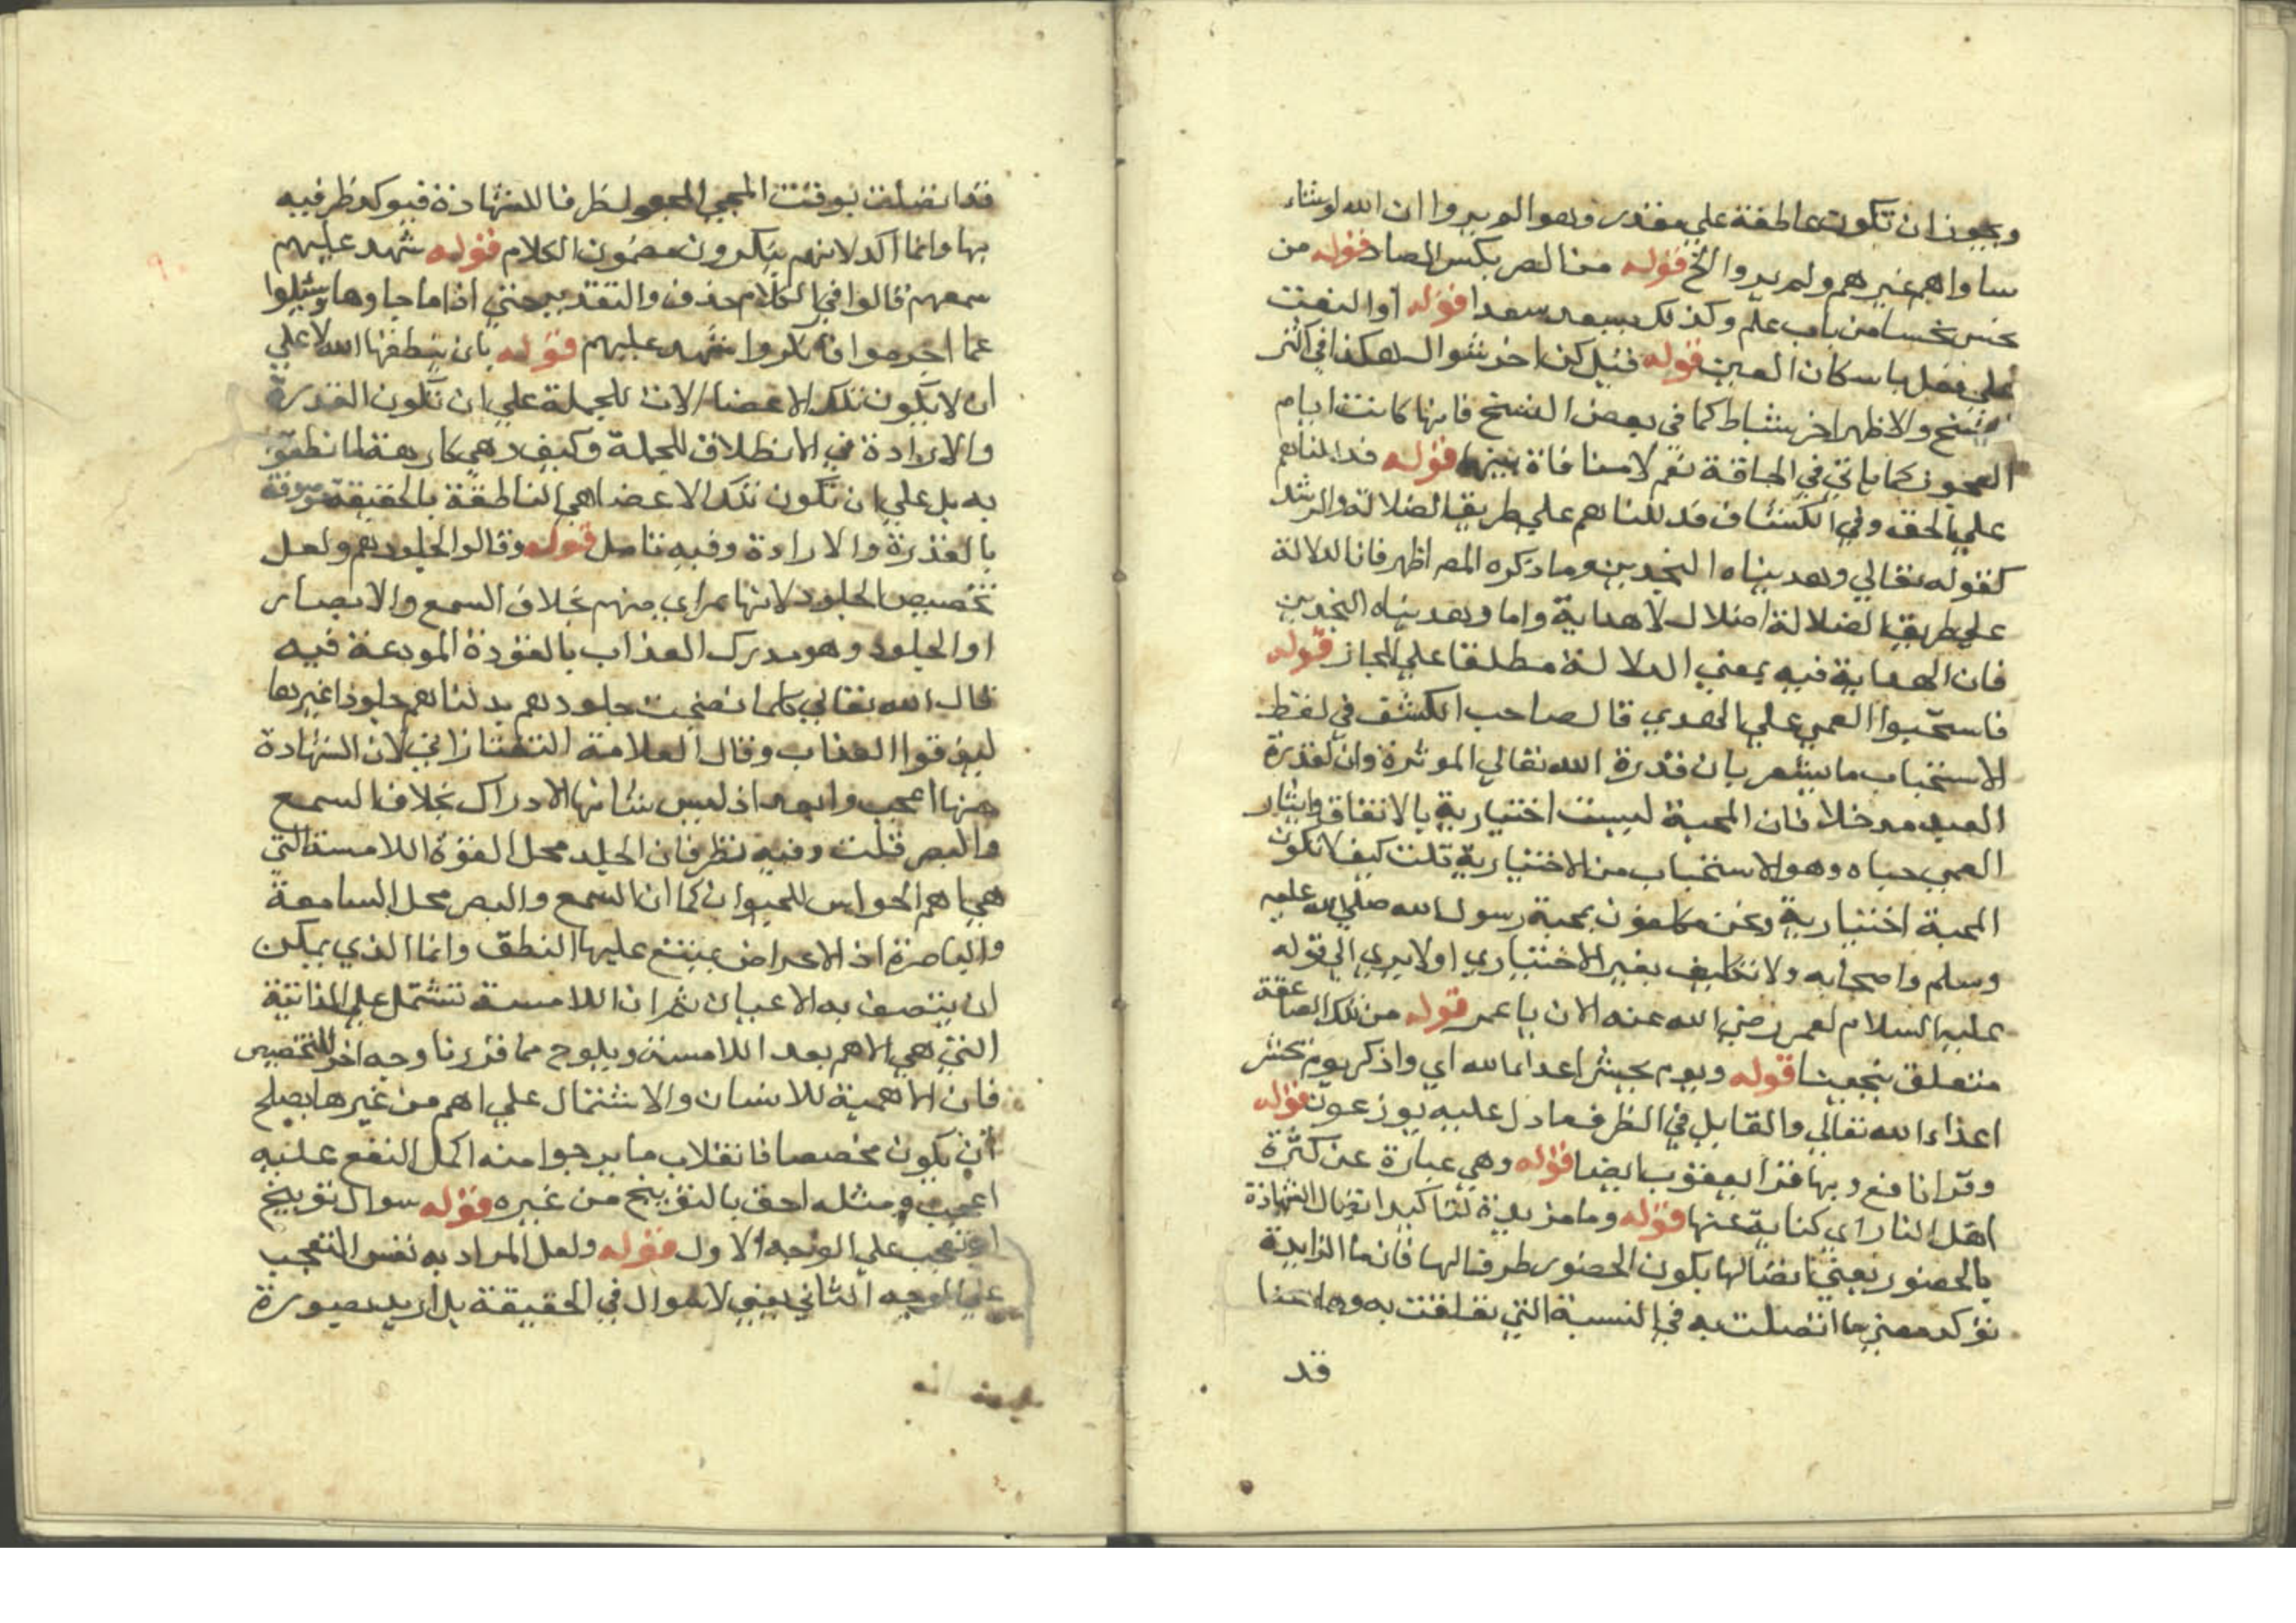 ويجوز ان تكون عاطفة على مقدر وهو الم يروا ان الله لو شاء
ساواهم غيرهم ولم يروا الخ قوله من الصر بكسر الصاد قوله من
نحس نحسا من باب علم وكذلك سعد سعدا قوله او النعت
على فعل باسكان العين قوله قيل كن اخر شوال هكذا في اكثر
النسخ والاظهر اخر شباط كما في بعض النسخ فانها كانت ايام
العجوز كما ياتي في الحاقة نعم لا منافاة بينها قوله فدللناهم
علي الحق وفي الكشاف فدللناهم علي طريقي الضلالة والرشد
كقوله تعالي وهديناه النجدين وما ذكره المص اظهر فان الدلالة
علي طريق الضلالة اضلال لا هداية واما وهديناه النجدين
فان الهداية فيه بمعني الدلالة مطلقا علي المجاز قوله
فاستحبوا العمي علي الهدي قال صاحب الكشف في لفظ
الاستحباب ما يشعر بان قدرة الله تعالي الموثرة وان لقدرة
العبد مدخلا فان المحبة ليست اختيارية بالاتفاق وايثار
العمي حباه وهو الاستحباب من الاختيارية قلت كيف لا تكون
المحبة اختيارية ونحن مكلفون بمحبة رسول الله صلي الله عليه
وسلم واصحابه ولا تكليف بغير الاختياري اولا يري الي قوله
عليه السلام لعمر رضي الله عنه الان يا عمر قوله من تلك الصاعقة
متعلق بنجينا قوله ويوم يحشر اعداء الله اي واذكر يوم نحشر
اعداء الله تعالي والقابل في الظرف ما دل عليه يوزعون قوله
وقرا نافع وبها قرا يعقوب ايضا قوله وهي عبارة عن كثرة
اهل النار اي كناية عنها قوله وما مزيدة لتاكيد اتصال الشهادة
بالحضور يعني اتصالها بكون الحضور ظرفا لها فان ما الزايدة
توكد معني ما اتصلت به في النسبة التي تعلقت به وهاهنا
قد
قد اتصلت بوقت المجي المجعول ظرفا للشهادة فيوكد ظرفيه
بها وانما اكد لانهم ينكرون مضمون الكلام قوله شهد عليهم
سمعهم قالوا في الكلام حذف والتقدير حتي اذا ما جاوها وسئلوا
عما اجرموا فانكروا شهد عليهم قوله بان ينطقها الله لا علي
ان لا يكون تلك الاعضا الات للجملة علي ان تكون القدرة
والارادة في الانطلاق للجملة وكيف وهي كارهة لما نطقت
به بل علي ان تكون تلك الاعضا هي الناطقة بالحقيقة موصوفة
بالقدرة والارادة وفيه تامل قوله وقالوا لجلودهم ولعل
تخصيص الجلود لانها بمراي منهم بخلاف السمع والابصار
او الجلود وهو مدرك العذاب بالقوة المودعة فيه
قال الله تعالي كلما نضجت جلودهم بدلناهم جلودا غيرها
ليذوقوا العذاب وقال العلامة التفتازاني لان الشهادة
منها اعجب وابعد اذ ليس شانها الادراك بخلاف السمع
والبصر قلت وفيه نظر فان الجلد محل القوة اللامسة التي
هي اهم الحواس للحيوان كما ان السمع والبصر محل السامعة
والباصرة اذ الاعراض يمتنع عليها النطق وانما الذي يمكن
ان يتصف به الاعيان ثم ان اللامسة تشتمل علي الذائقة
التي هي الاهم بعد اللامسة ويلوح مما قررنا وجه اخر للتخصيص
فان الاهمية للانسان والاشتمال علي اهم من غيرها يصلح
ان يكون مخصصا فانقلاب ما يرجوا منه اكمل النفع عليه
اعجب ومثله احق بالتوبيخ من غيره قوله سوال توبيخ
او تعجب علي الوجه الاول قوله ولعل المراد به نفس التعجب
علي الوجه الثاني يعني لا سوال في الحقيقة بل اريد بصورة